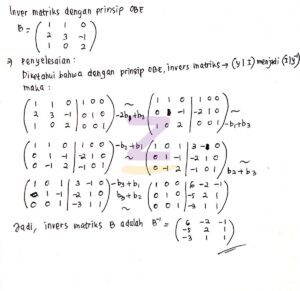 Inver matriks dengan prinsip OBE
B = ( 1 1 0
2 3 -1
1 0 2 )
⇒ Penyelesaian :
Diketahui bahwa dengan prinsip OBE, invers matriks → (y | I) menjadi (I | y)
maka :
( 1 1 0 | 1 0 0 ) ~ ( 1 1 0 | 1 0 0 ) ~
( 2 3 -1 | 0 1 0 ) -2b₁+b₂ ( 0 1 -1 | -2 1 0 )
( 1 0 2 | 0 0 1 ) ( 1 0 2 | 0 0 1 ) -b₁+b₃
( 1 1 0 | 1 0 0 ) -b₂+b₁ ( 1 0 1 | 3 -1 0 )
( 0 1 -1 | -2 1 0 ) ~ ( 0 1 -1 | -2 1 0 ) ~
( 0 -1 2 | -1 0 1 ) ( 0 -1 2 | -1 0 1 ) b₂+b₃
( 1 0 1 | 3 -1 0 ) -b₃+b₁ ( 1 0 0 | 6 -2 -1 )
( 0 1 -1 | -2 1 0 ) b₃+b₂ ( 0 1 0 | -5 2 1 )
( 0 0 1 | -3 1 1 ) ~ ( 0 0 1 | -3 1 1 )
Jadi, invers matriks B adalah B⁻¹ = ( 6 -2 -1
-5 2 1
-3 1 1 )